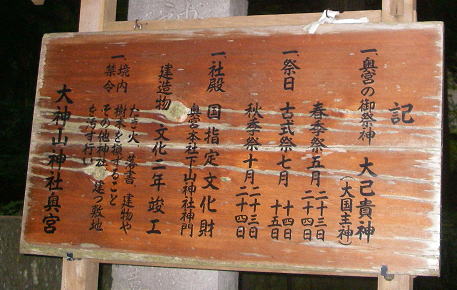 記
一、奥宮の御祭神 大己貴神
(大国主神)
一、祭日
春季祭 五月 二十三日
二十四日
古式祭 七月 十四日
十五日
秋季祭 十月 二十三日
二十四日
一、社殿 国指定文化財
奥宮本社 下山神社 神門
建造物 文化二年竣工
一、境内
禁令
たき火 落書 建物や
樹木を損すること
その他神社
大神山神社奥宮